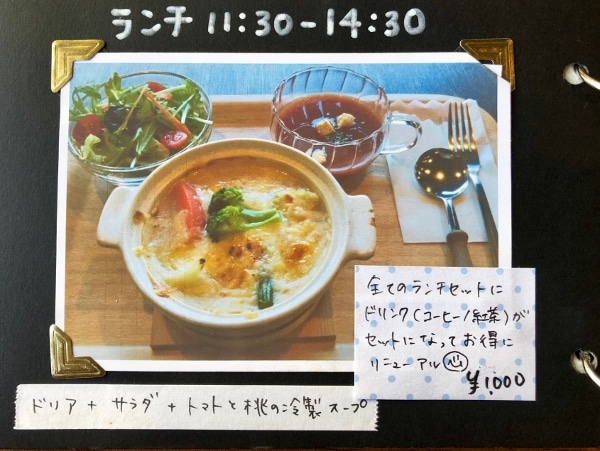 ランチ 11:30-14:30
全てのランチセットに
ドリンク(コーヒー/紅茶)が
セットになってお得に
リニューアル
¥1,000
ドリア + サラダ + トマトと桃の冷製スープ